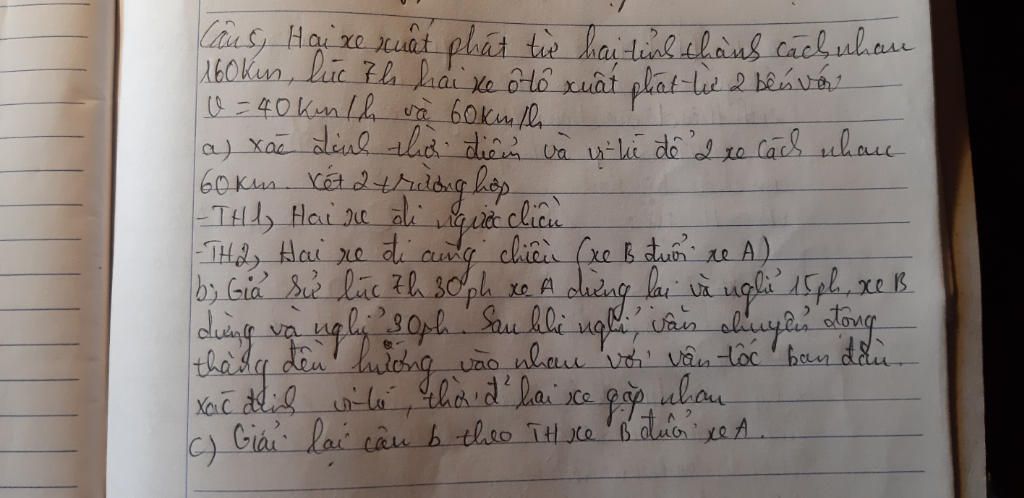 Câu 5, Hai xe xuất phát từ hai tỉnh thành cách nhau
160km, lúc 7h hai xe ô tô xuất phát từ 2 bến với
v = 40km/h và 60km/h
a) xác định thời điểm và vị trí để 2 xe cách nhau
60km. xét 2 trường hợp
- TH1, Hai xe đi ngược chiều
- TH2, Hai xe đi cùng chiều (xe B đuổi xe A)
b, Giả sử lúc 7h 30ph xe A dừng lại và nghỉ 15ph, xe B
dừng và nghỉ 30ph. Sau khi nghỉ, vẫn chuyển động
thẳng đều hướng vào nhau với vận tốc ban đầu.
xác định vị trí, thời đ' hai xe gặp nhau
c) Giải lại câu b theo TH xe B đuổi xe A.